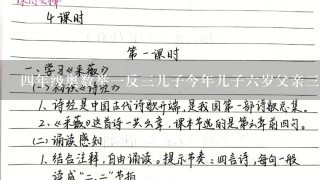 4课时
第一课时
一、学习《采薇》
四年级奥数举一反三儿子今年儿子六岁父亲三
(一)初识《诗经》
1、诗经是中国古代诗歌开端,是我国第一部诗歌总集。
2、《采薇》这首诗一共六章,课本节选的是第六章前四句。
(二)诵读感知
1、结合注释,自由诵读。提示节奏:四言诗,每句一般
读成“二、二”节拍